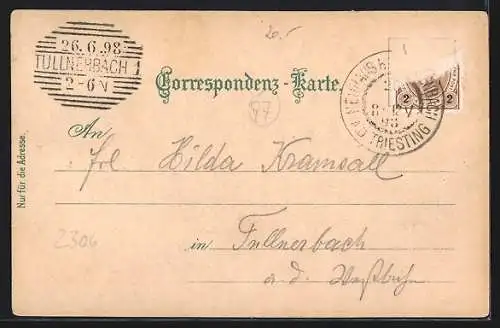 20.-
26.6.98
TULLNERBACH
2-6N
Correspondenz-Karte.
97
2 2
NEUHAUS
TRIESTING
98
An
Frl Hilda Kramsall
Nur für die Adresse.
2306
in Tullnerbach
a. d. Westbahn